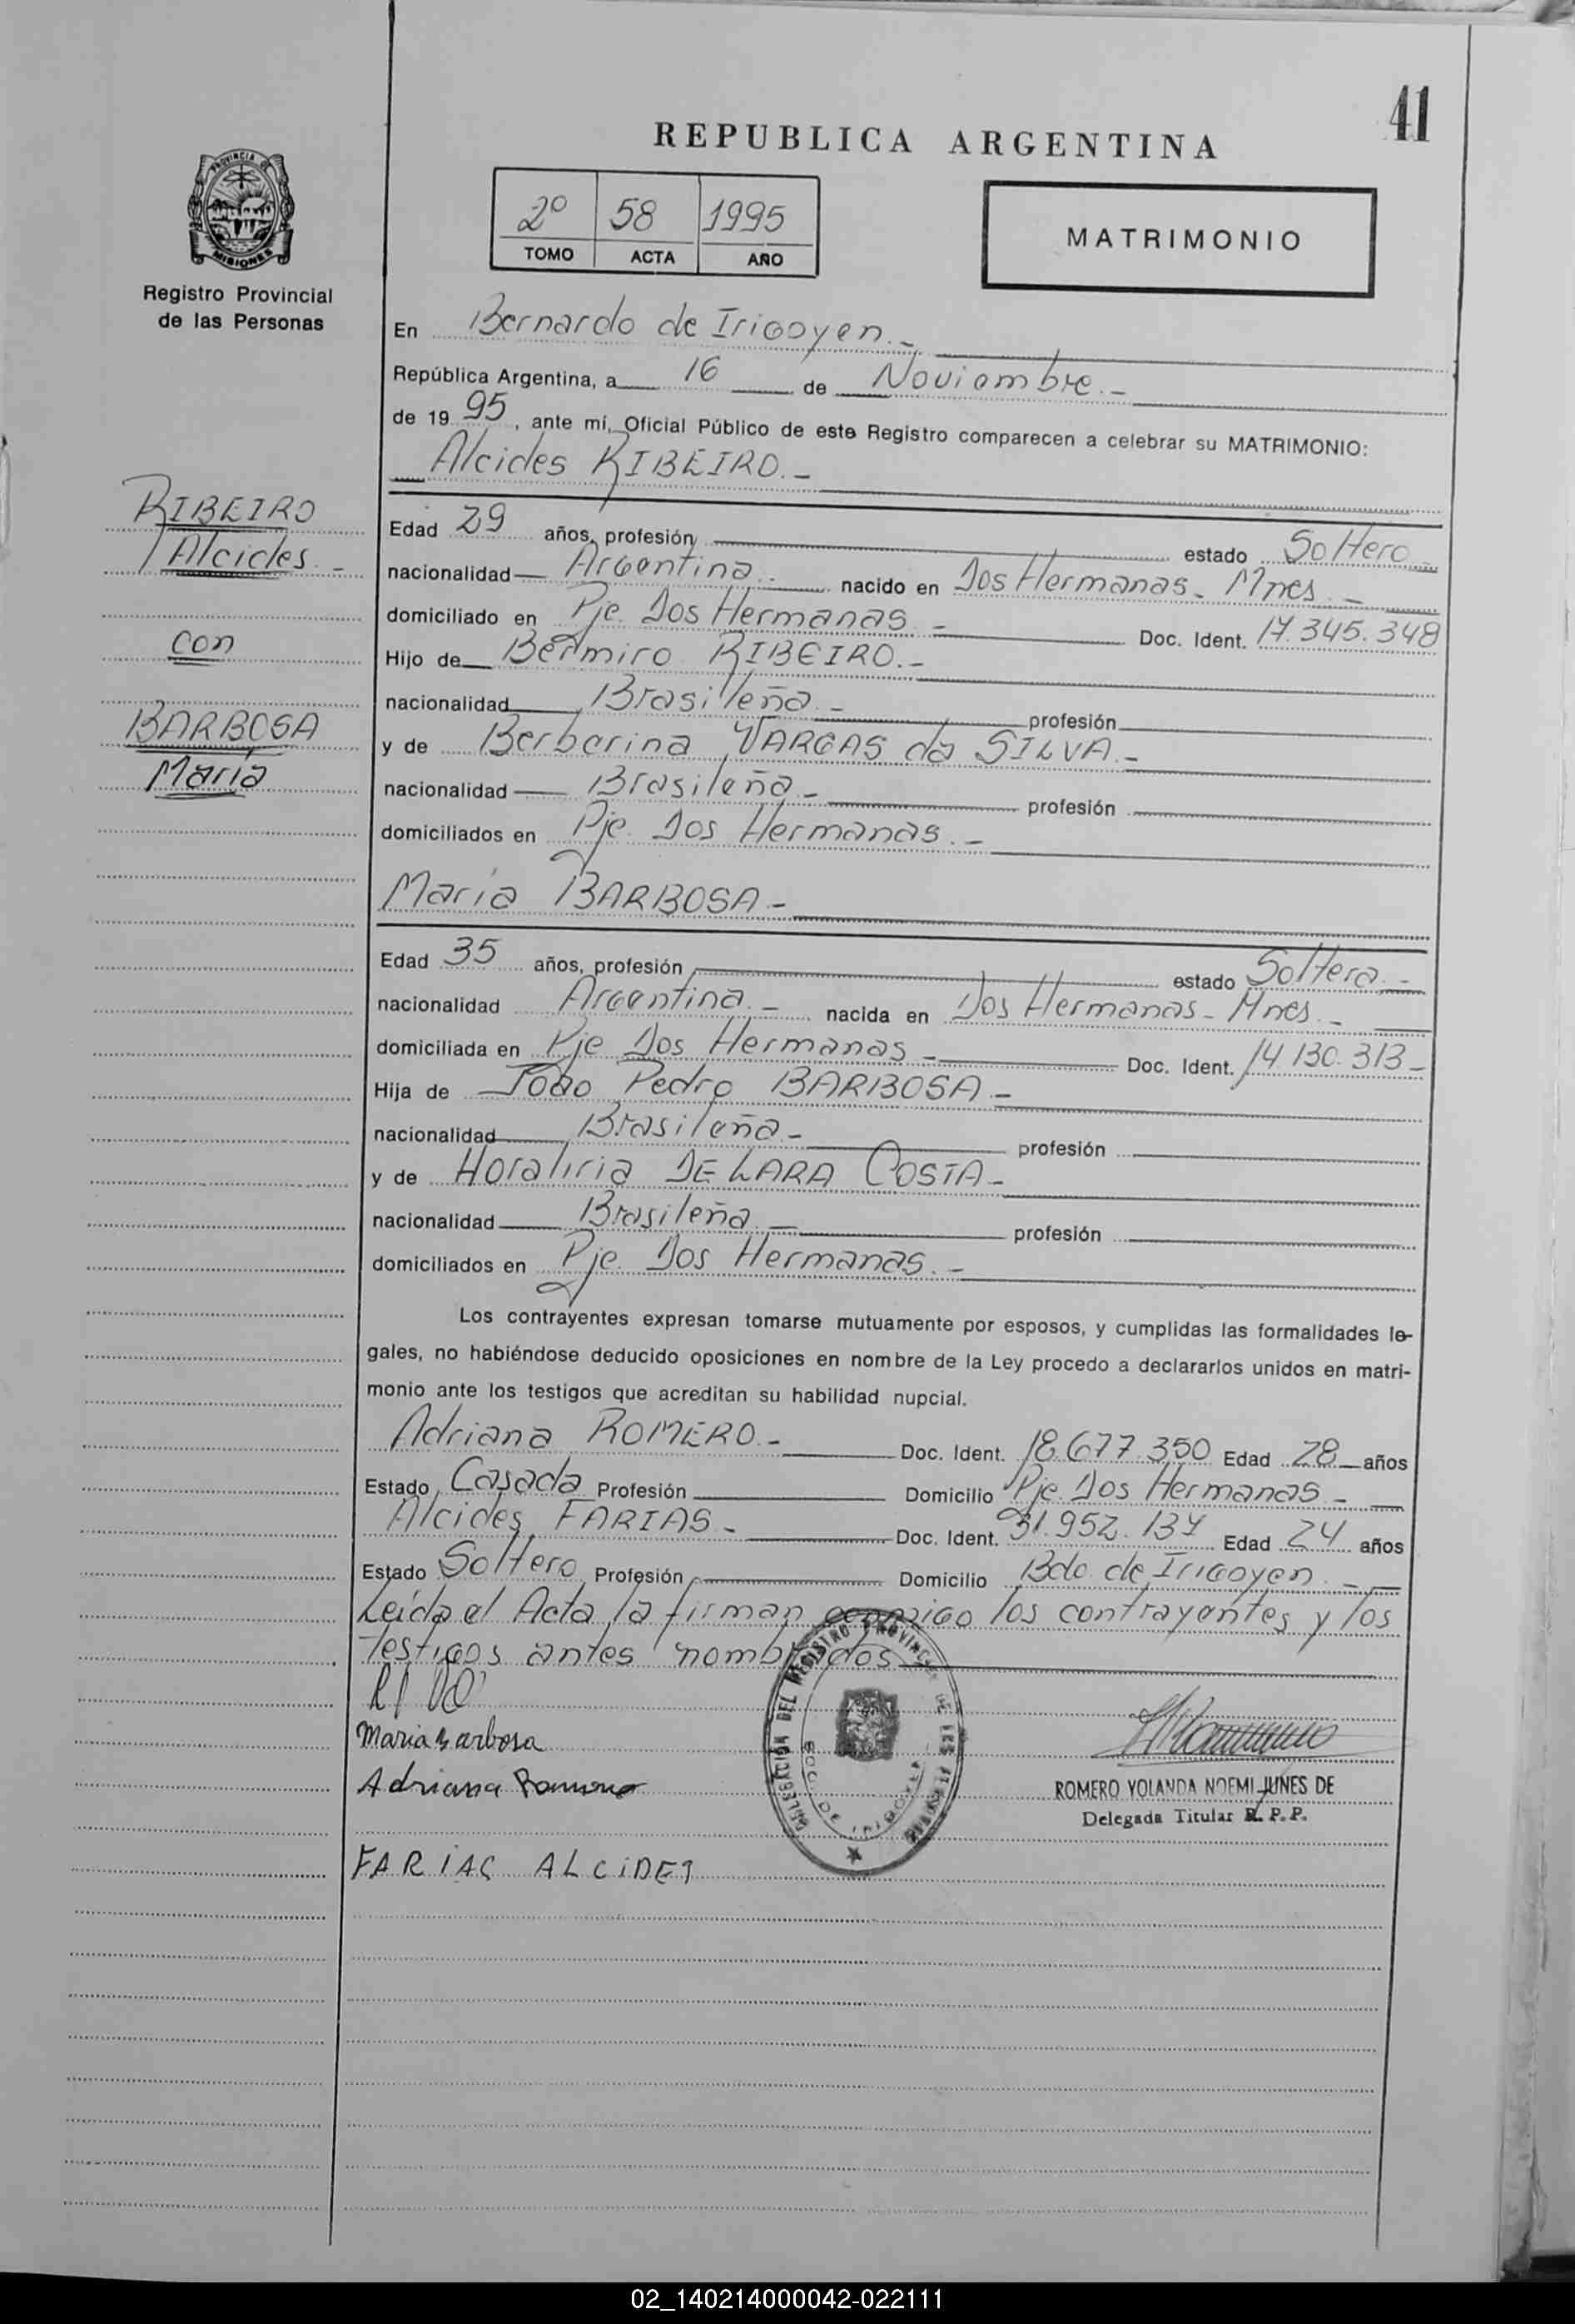 41
REPUBLICA ARGENTINA
PROVINCIA DE
MISIONES
Registro Provincial
de las Personas
2º 58 1995
TOMO ACTA AÑO
MATRIMONIO
En Bernardo de Irigoyen.-
República Argentina, a 16 de Noviembre.-
de 19 95, ante mí, Oficial Público de este Registro comparecen a celebrar su MATRIMONIO:
Alcides RIBEIRO.-
RIBEIRO
Alcides.-
con
BARBOSA
María
Edad 29 años, profesión estado Soltero.-
nacionalidad Argentina.- nacido en Dos Hermanas- Mnes.-
domiciliado en Pje. Dos Hermanas.- Doc. Ident. 17.345.348
Hijo de Bermiro RIBEIRO.-
nacionalidad Brasileña.- profesión
y de Berbarina VARGAS da SILVA.-
nacionalidad Brasileña.- profesión
domiciliados en Pje. Dos Hermanas.-
María BARBOSA-
Edad 35 años, profesión estado Soltera.-
nacionalidad Argentina.- nacida en Dos Hermanas- Mnes.-
domiciliada en Pje Dos Hermanas- Doc. Ident. 14.130.313-
Hija de João Pedro BARBOSA-
nacionalidad Brasileña- profesión
y de Horaliria DE LARA COSTA-
nacionalidad Brasileña.- profesión
domiciliados en Pje. Dos Hermanas.-
Los contrayentes expresan tomarse mutuamente por esposos, y cumplidas las formalidades le-
gales, no habiéndose deducido oposiciones en nombre de la Ley procedo a declararlos unidos en matri-
monio ante los testigos que acreditan su habilidad nupcial.
Adriana ROMERO.- Doc. Ident. 18.677.350 Edad 28 años
Estado Casada Profesión Domicilio Pje. Dos Hermanas-
Alcides FARIAS- Doc. Ident. 31.952.134 Edad 24 años
Estado Soltero Profesión Domicilio Bdo. de Irigoyen.-
Leída el Acta la firman conmigo los contrayentes y los
testigos antes nombrados
Maria Barbosa
Adriana Romero
FARIAS ALCIDES
DELEGACION DEL REGISTRO PROVINCIAL DE LAS PERSONAS
BDO. DE IRIGOYEN
ROMERO YOLANDA NOEMI JUNES DE
Delegada Titular R. P. P.
02_140214000042-022111